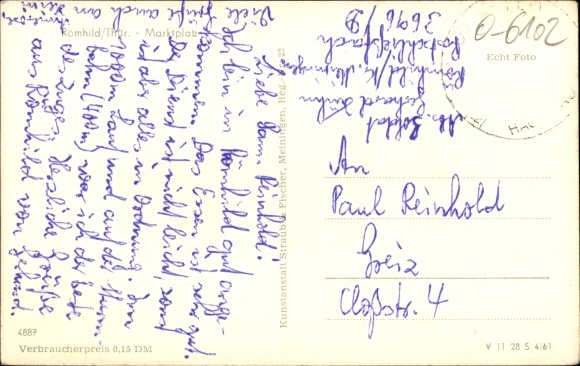 Römhild/Thür. - Marktplatz
Liebe Fam. Reinhold!
Ich bin in Römhild gut ange-
kommen. Das Essen ist sehr gut.
Der Dienst ist nicht leicht sonst
ist aber alles in Ordnung. Im
1000m Lauf und auf der Sturm-
bahn (400m) war ich der beste
des Zuges. Herzliche Grüße
aus Römhild von
Viele
Grüße auch an
Kunstanstalt Straub & Fischer, Meiningen, Reg.
Abs. Soldat
Römhild/Kr. Meiningen
Postschließfach
3696/D
O-6102
Echt Foto
An
Paul Reinhold
Greiz
Cloßstr. 4
4887
Verbraucherpreis 0,15 DM
V 11 28 S 4/61